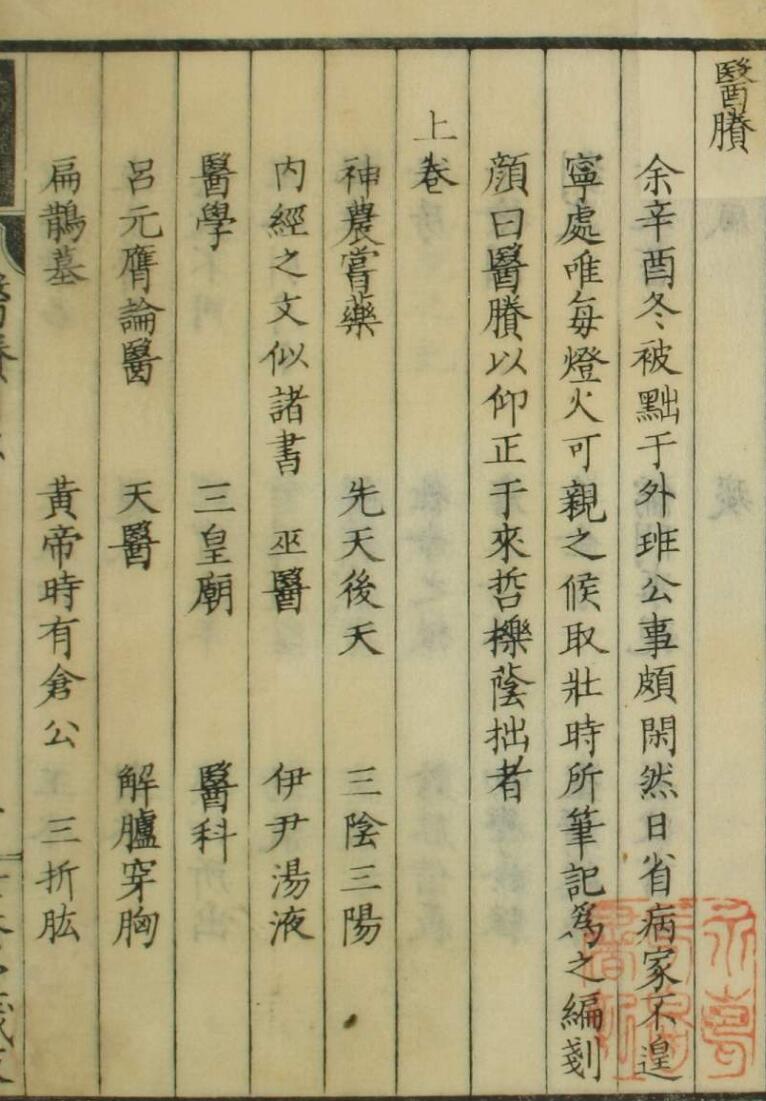 醫賸
余辛酉冬被黜于外班公事頗閑然日省病家不遑
寧處唯每燈火可親之候取壯時所筆記爲之編剗
顏曰醫賸以仰正于來哲櫟蔭拙者
上卷
神農嘗藥 先天後天 三陰三陽
内經之文似諸書 巫醫 伊尹湯液
醫學 三皇廟 醫科
呂元膺論醫 天醫 解臚穿胸
扁鵲墓 黃帝時有倉公 三折肱